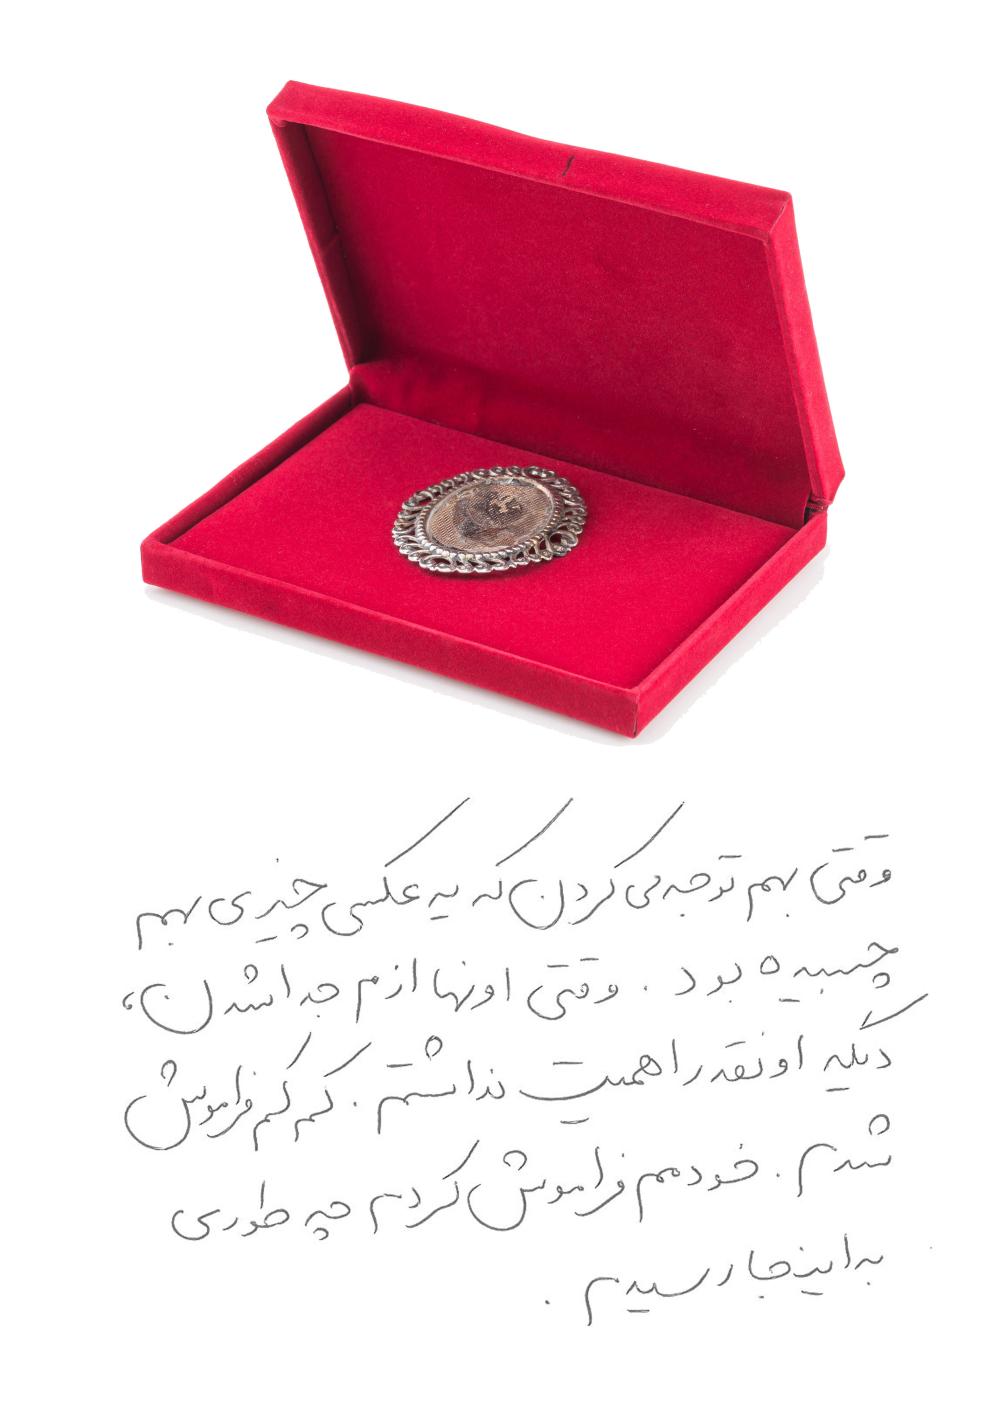 وقتی بهم توجه می کردن که یه عکسی چیزی بهم
چسبیده بود . وقتی اونها ازم جدا شدن،
دیگه اونقدر اهمیت نداشتم . کم کم فراموش
شدم . خودمم فراموش کردم چه طوری
به اینجا رسیدم .